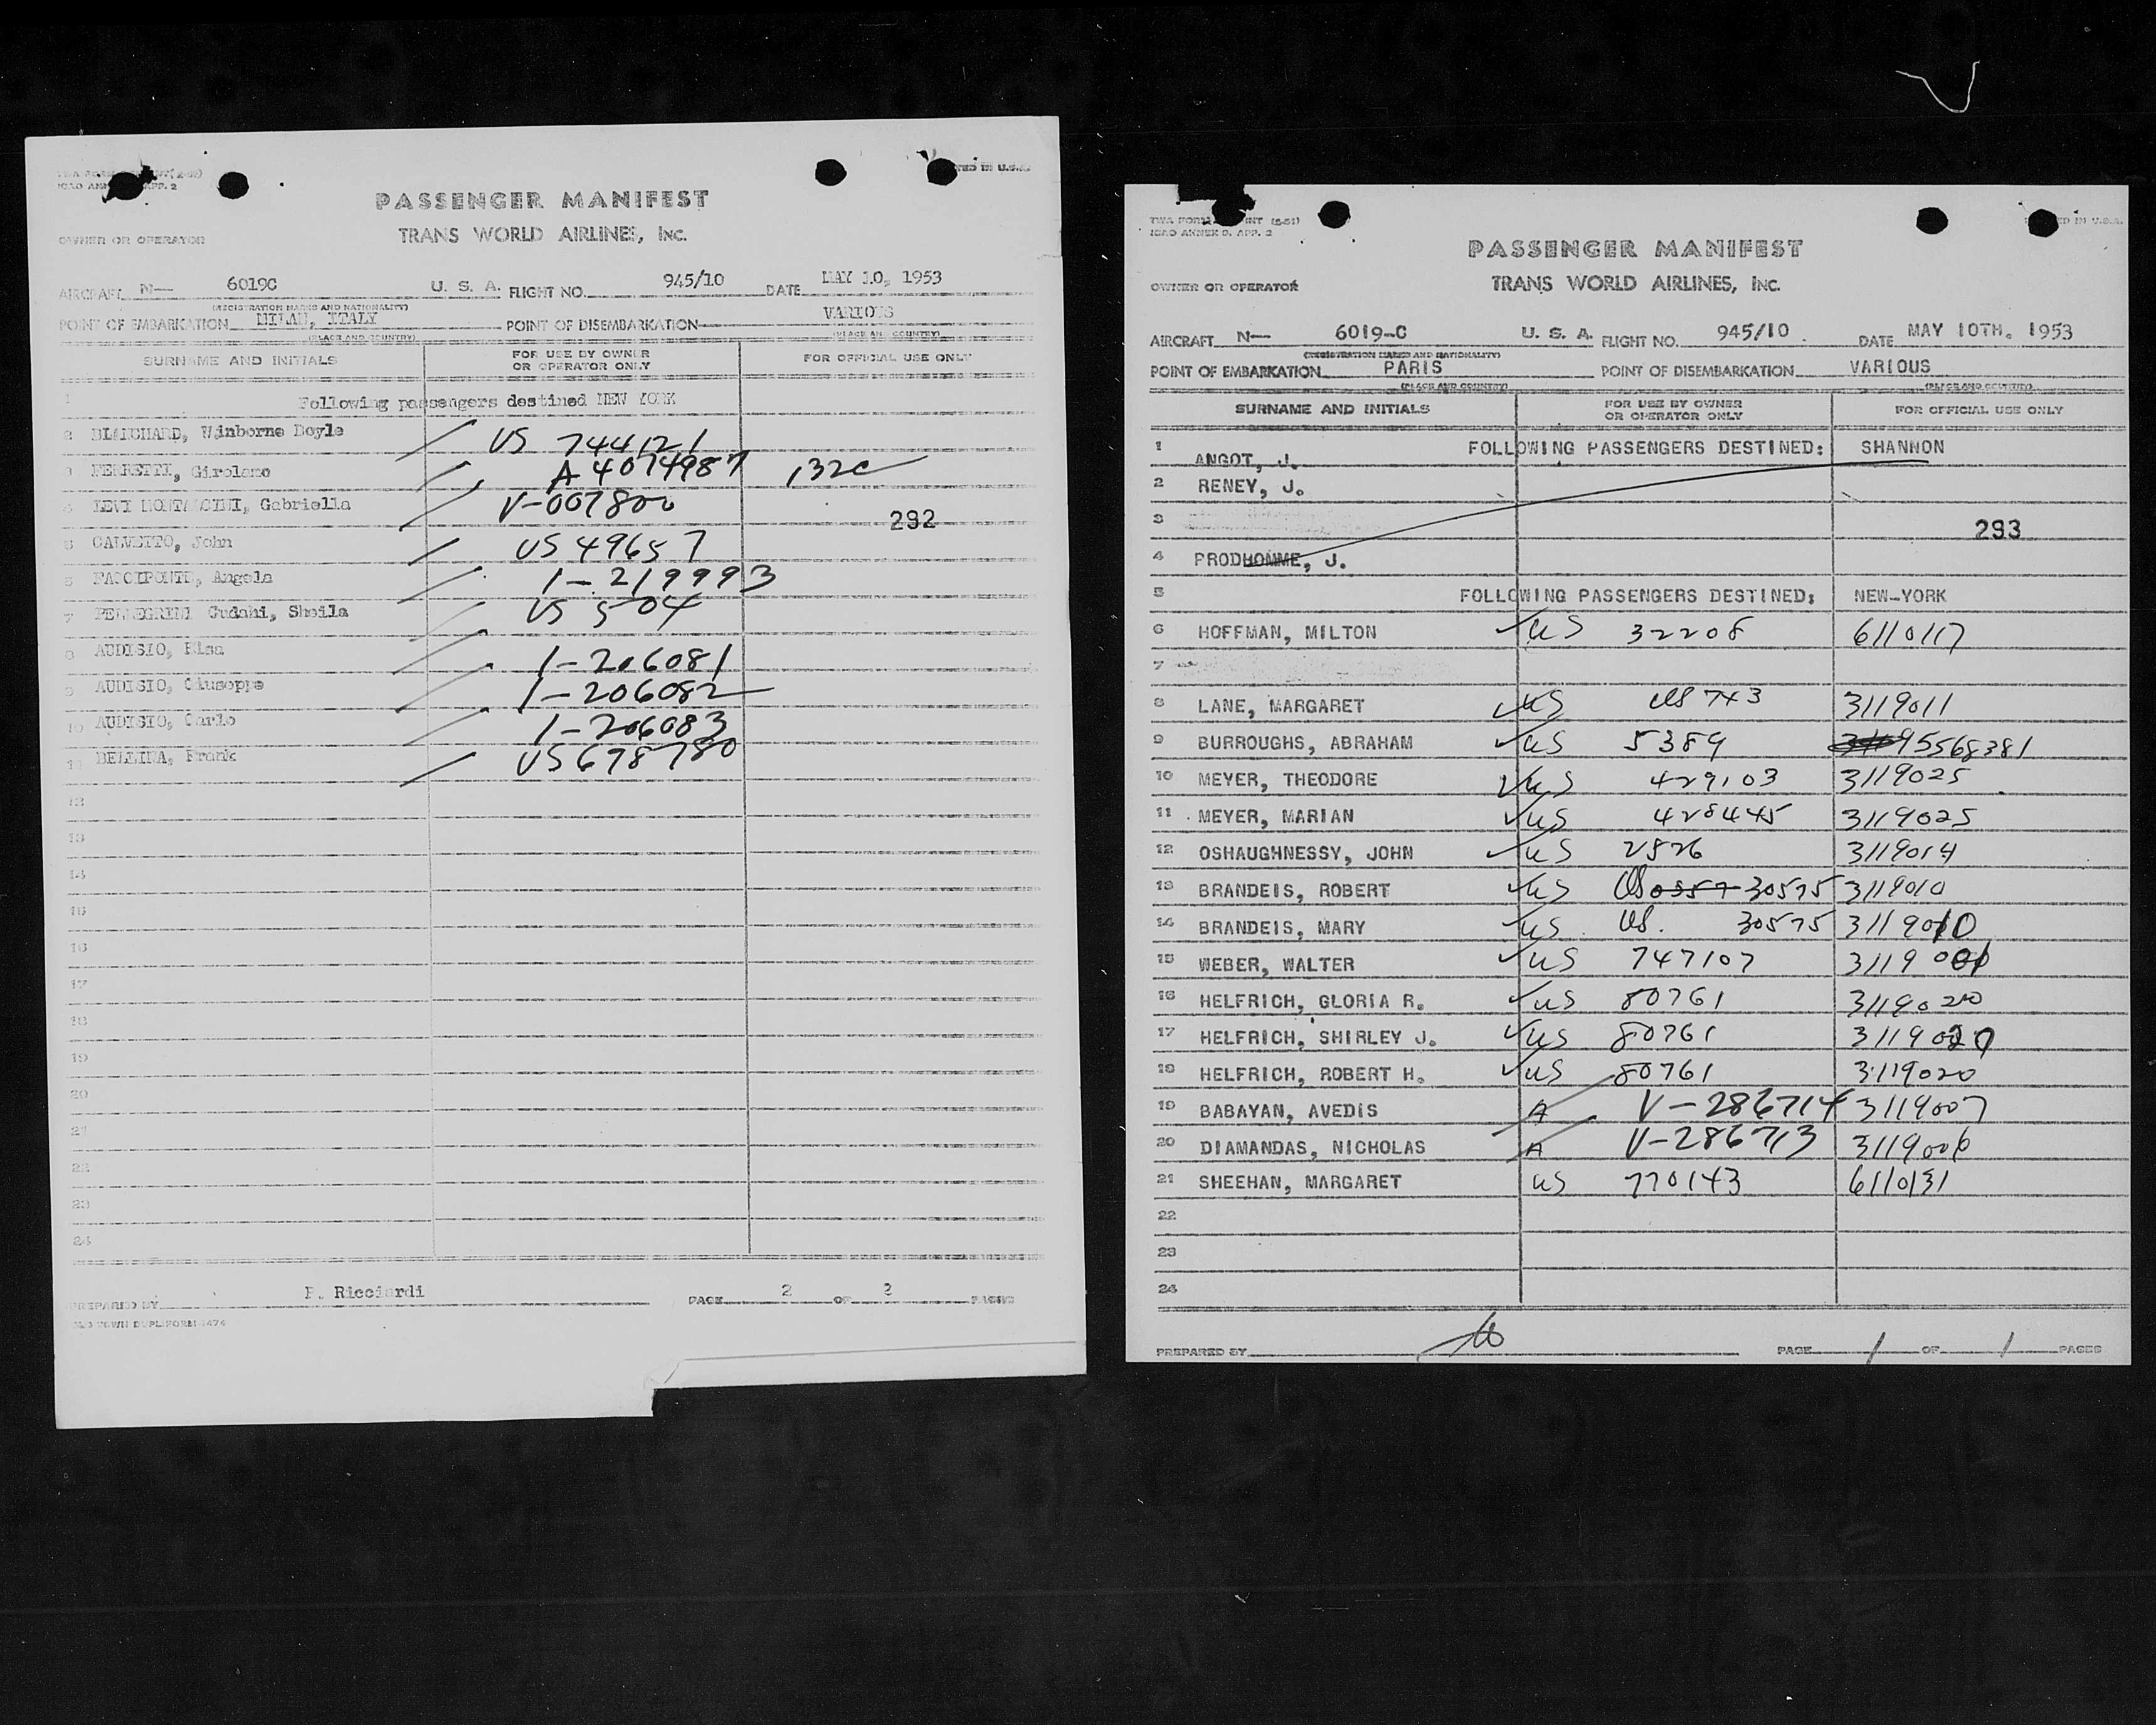 PASSENGER MANIFEST
TRANS WORLD AIRLINES, INC.
OWNER OR OPERATOR
AIRCRAFT N— 6019C U. S. A. FLIGHT NO. 945/10 DATE MAY 10, 1953
(REGISTRATION MARKS AND NATIONALITY)
POINT OF EMBARKATION MILAN, ITALY POINT OF DISEMBARKATION VARIOUS
(PLACE AND COUNTRY) (PLACE AND COUNTRY)
SURNAME AND INITIALS FOR USE BY OWNER OR OPERATOR ONLY FOR OFFICIAL USE ONLY
1 Following passengers destined NEW YORK
2 BLANCHARD, Winborne Doyle US 744121
3 FERRETTI, Girolamo A 4074987 132c
4 LEVI MONTALCINI, Gabriella V-007800
292
5 CALVETTO, John US 49657
6 Angela 1-219993
7 PELLEGRINI Cudahi, Sheila US 504
8 AUDISIO, Elsa 1-206081
9 AUDISIO, Giuseppe 1-206082
10 AUDISIO, Carlo 1-206083
11 BELLINA, Frank US 678780
12
13
14
15
16
17
18
19
20
21
22
23
24
PREPARED BY P. Ricciardi PAGE 2 OF 2 PAGES
TWA FORM INT (5-51) PRINTED IN U.S.A.
ICAO ANNEX 9, APP. 2
PASSENGER MANIFEST
TRANS WORLD AIRLINES, INC.
OWNER OR OPERATOR
AIRCRAFT N— 6019-C U. S. A. FLIGHT NO. 945/10 . DATE MAY 10TH. 1953
(REGISTRATION MARKS AND NATIONALITY)
POINT OF EMBARKATION PARIS POINT OF DISEMBARKATION VARIOUS
(PLACE AND COUNTRY) (PLACE AND COUNTRY)
SURNAME AND INITIALS FOR USE BY OWNER OR OPERATOR ONLY FOR OFFICIAL USE ONLY
1 FOLLOWING PASSENGERS DESTINED: SHANNON
ANGOT, J.
2 RENEY, J.
3 293
4 PRODHOMME, J.
5 FOLLOWING PASSENGERS DESTINED; NEW-YORK
6 HOFFMAN, MILTON US 32208 6110117
7
8 LANE, MARGARET US US 743 3119011
9 BURROUGHS, ABRAHAM US 5389 5568381
10 MEYER, THEODORE US 429103 3119025
11 MEYER, MARIAN US 428445 3119025
12 OSHAUGHNESSY, JOHN US 2826 3119014
13 BRANDEIS, ROBERT US US 0357 30575 3119010
14 BRANDEIS, MARY US US. 30575 3119010
15 WEBER, WALTER US 747107 3119001
16 HELFRICH, GLORIA R. US 80761 3119020
17 HELFRICH, SHIRLEY J. US 80761 3119020
18 HELFRICH, ROBERT H. US 80761 3119020
19 BABAYAN, AVEDIS A V-286714 3119007
20 DIAMANDAS, NICHOLAS A V-286713 3119006
21 SHEEHAN, MARGARET US 770143 6110131
22
23
24
PREPARED BY PAGE 1 OF 1 PAGES